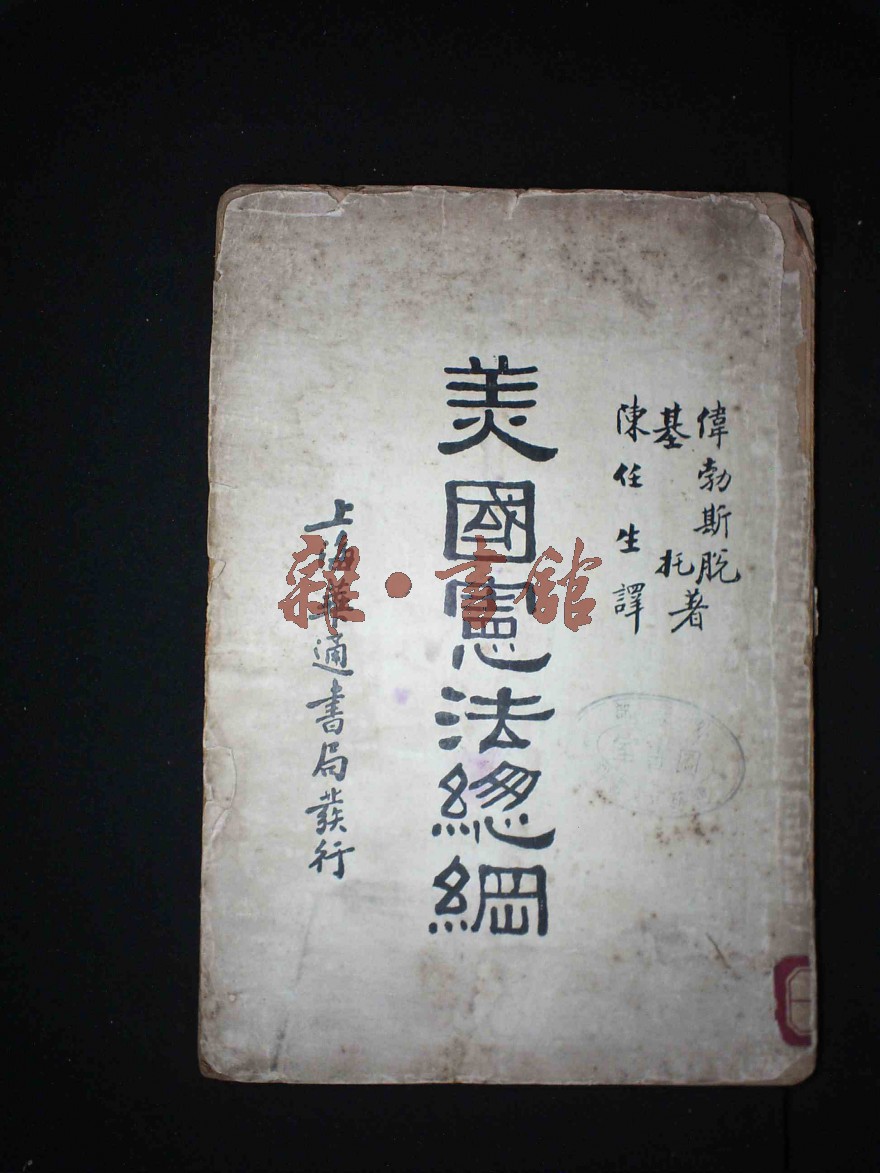 偉勃斯脫
基托著
陳任生譯
美國憲法總綱
上海華通書局發行
雜·書舘